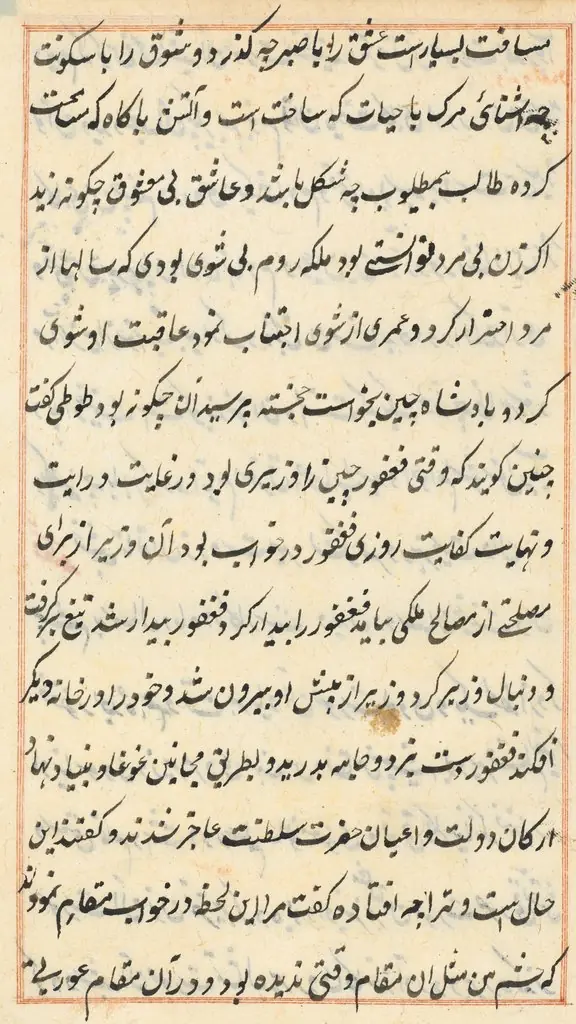 مسافت بسیار است عشق را با صبر چه گذر و شوق را با سکونت
چه آشنائی مرک با حیات که ساخت است و آتش با کاه که
کرده طالب بمطلوب چه شکل باشد و عاشق بی معشوق چکونه زید
اکر زن بی مرد توانستی بود ملکه روم بی شوی بودی که سالها از
مرد احتراز کرد و عمری از شوی اجتناب نمود عاقبت او شوی
کرد و بادشاه چین بخواست خجسته پرسید آن چکونه بود طوطی کفت
چنین کویند که وقتی فغفور چین را وزیری بود در غایت درایت
و نهایت کفایت روزی فغفور در خواب بود آن وزیر از برای
مصلحتی از مصالح ملکی بیامد فغفور را بیدار کرد فغفور بیدار شد تیغ برکرفت
و دنبال وزیر کرد وزیر از پیش او بیرون شد و خود را در خانه دیکر
افکند فغفور دست بزد و جامه بدرید و بطریق مجانین غوغا و بنیاد نهاد
ارکان دولت و اعیان حضرت سلطنت عاجز شدند و کفتند این
حال است و ترا چه افتاده کفت مرا این لحظه در خواب مقام نمودند
که چشم من مثل ان مقام وقتی ندیده بود و در آن مقام عورتی